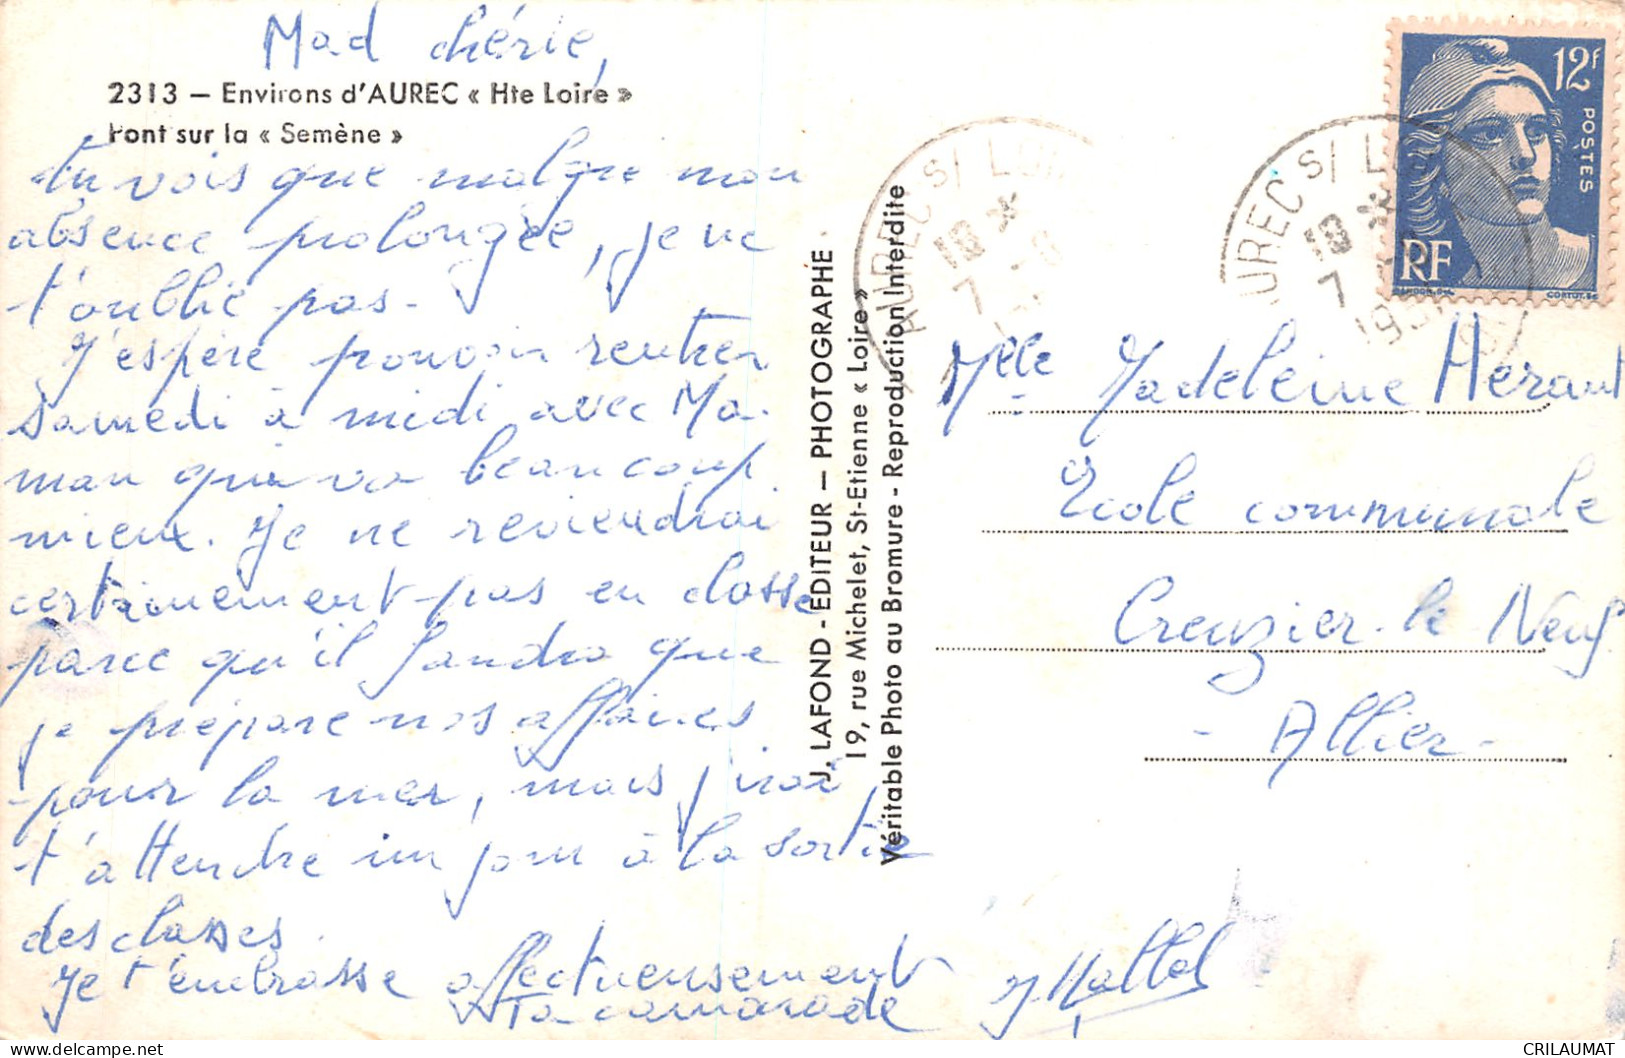 Mad chérie,
2313 — Environs d'AUREC « Hte Loire »
Pont sur la « Semène »
tu vois que malgré mon
absence prolongée, je ne
t'oublie pas.
J'espère pouvoir rentrer
samedi à midi avec Ma-
man qui va beaucoup
mieux. Je ne reviendrai
certainement pas en classe
parce qu'il faudra que
je prépare nos affaires
pour la mer, mais j'irai
t'attendre un jour à la sortie
des classes.
Je t'embrasse affectueusement
Ta camarade
J. LAFOND - EDITEUR — PHOTOGRAPHE
19, rue Michelet, St-Etienne « Loire »
Véritable Photo au Bromure - Reproduction Interdite
AUREC S/ LOIRE
18 *
7
AUREC S/ LOIRE
18 *
7
12f
POSTES
RF
GANDON. DEL.
CORTOT. SC.
Mlle Madeleine Heraut
Ecole communale
Creuzier-le-Neuf
- Allier -
CRILAUMAT